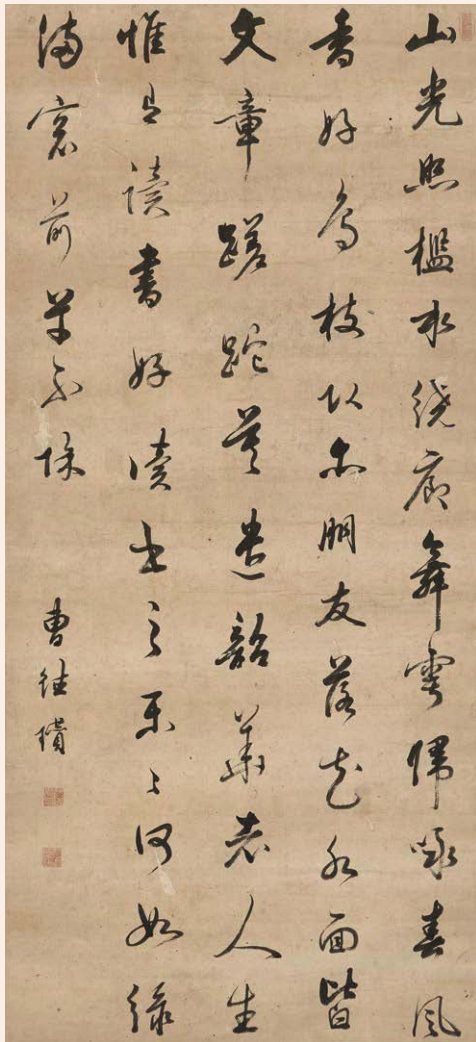 山光照檻水繞廊舞雩歸咏春風
香好鳥枝頭亦朋友落花水面皆
文章蹉跎莫遣韶華老人生
惟有讀書好讀書之樂〻何如綠
滿窗前草不除
曹